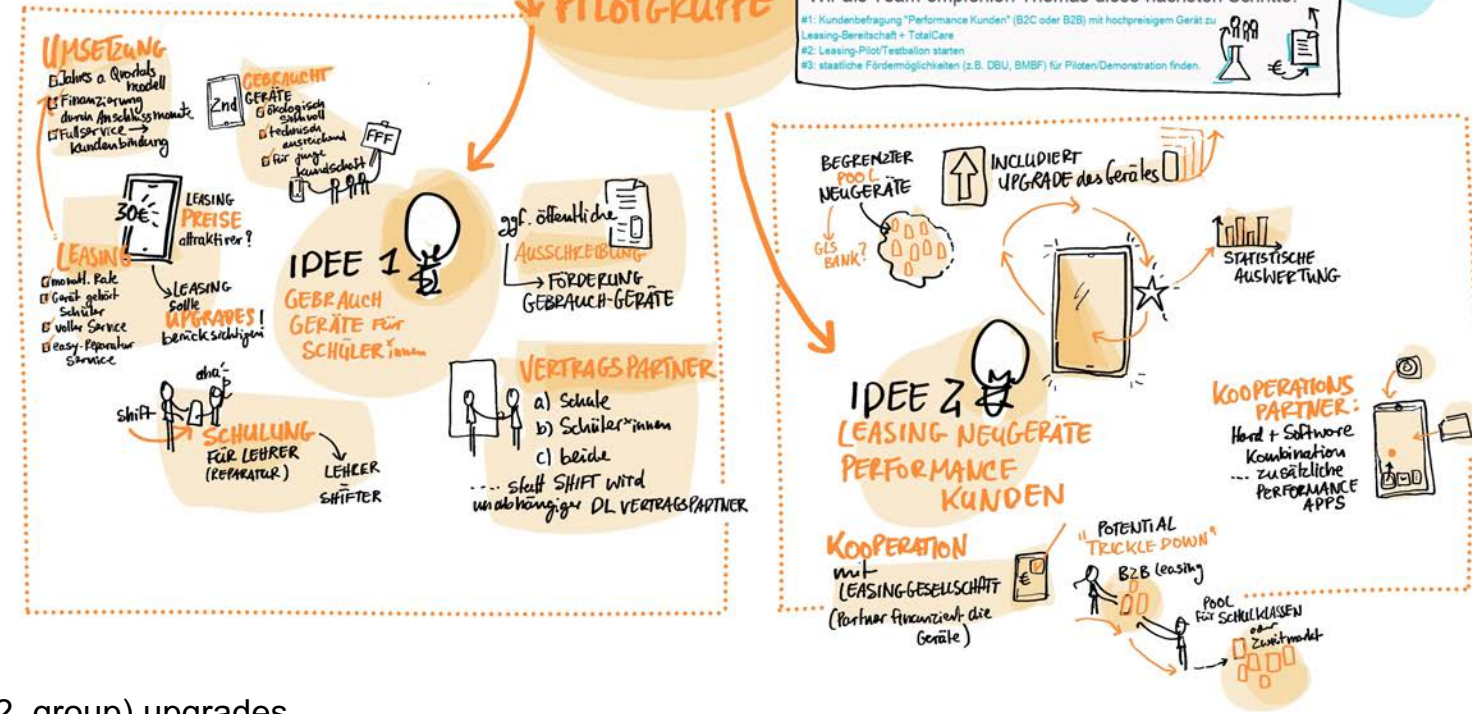 PILOTGRUPPE
Wir als Team empfehlen Thomas diese nächsten Schritte:
#1: Kundenbefragung "Performance Kunden" (B2C oder B2B) mit hochpreisigem Gerät zu
Leasing-Bereitschaft + TotalCare
#2: Leasing-Pilot/Testballon starten
#3: staatliche Fördermöglichkeiten (z.B. DBU, BMBF) für Piloten/Demonstration finden.
€
UMSETZUNG
Jahres o. Quartals
modell
Finanzierung
durch Anschlussmonate
Fullservice →
Kundenbindung
2nd
GEBRAUCHT
GERÄTE
ökologisch
sinnvoll
technisch
ausreichend
für junge
Kundschaft
FFF
30€
LEASING
PREISE
attraktiver?
LEASING
monatl. Rate
Gerät gehört
Schüler
voller Service
easy-Reparatur
Service
LEASING
sollte
UPGRADES!
berücksichtigen
IDEE 1
GEBRAUCH
GERÄTE FÜR
SCHÜLER*innen
ggf. öffentliche
AUSSCHREIBUNG
→ FÖRDERUNG
GEBRAUCH-GERÄTE
shift
aha
SCHULUNG
FÜR LEHRER
(REPARATUR)
LEHRER
=
SHIFTER
VERTRAGSPARTNER
a) Schule
b) Schüler*innen
c) beide
.... statt SHIFT wird
unabhängiger DL VERTRAGSPARTNER
BEGRENZTER
POOL
NEUGERÄTE
GLS
BANK?
INCLUDIERT
UPGRADE des Gerätes
STATISTISCHE
AUSWERTUNG
IDEE 2
LEASING NEUGERÄTE
PERFORMANCE
KUNDEN
KOOPERATIONS
PARTNER:
Hard + Software
Kombination
... zusätzliche
PERFORMANCE
APPS
KOOPERATION
mit
LEASINGGESELLSCHAFT
(Partner finanziert die
Geräte)
€
POTENTIAL
"TRICKLE DOWN"
B2B Leasing
POOL
für SCHULKLASSEN
oder
Zweitmarkt
2. group) upgrades